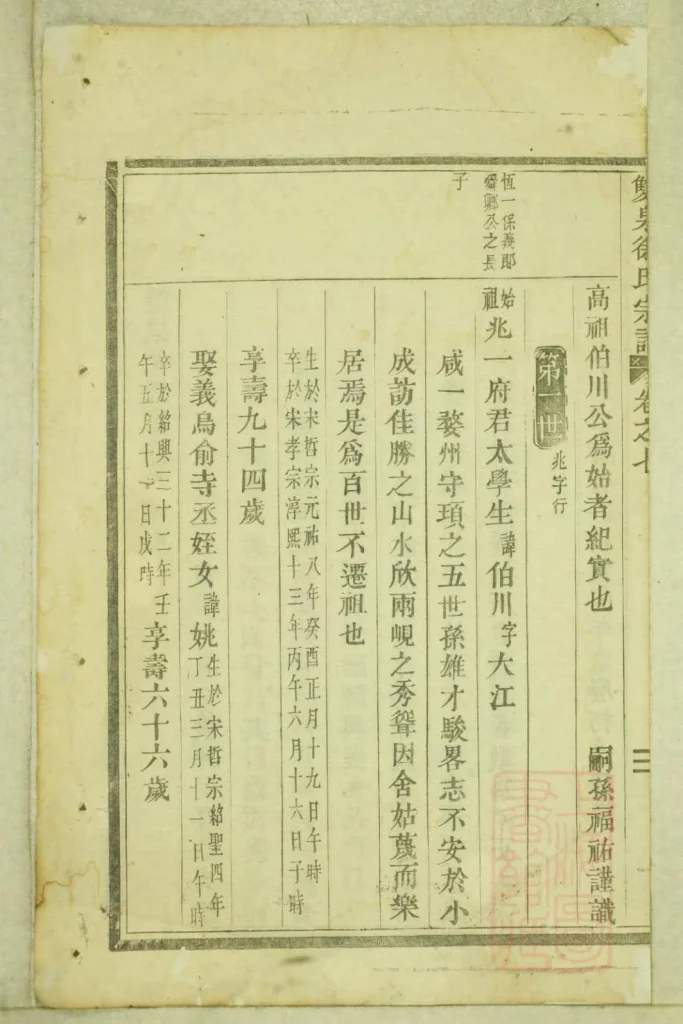 雙泉徐氏宗譜 卷之七 三
高祖伯川公爲始者紀實也 嗣孫福祐謹識
第一世 兆字行
恆一保義郎
公之長
子
始祖兆一府君太學生諱伯川字大江
咸一婺州守頊之五世孫雄才駿畧志不安於小
成訪佳勝之山水欣兩峴之秀聳因舍姑蔑而樂
居焉是爲百世不遷祖也
生於宋哲宗元祐八年癸酉正月十九日午時
卒於宋孝宗淳熙十三年丙午六月十六日子時
享壽九十四歲
娶義烏俞寺丞姪女諱姚生於宋哲宗紹聖四年
丁丑三月十一日午時
卒於紹興三十二年壬
午五月十日戌時享壽六十六歲